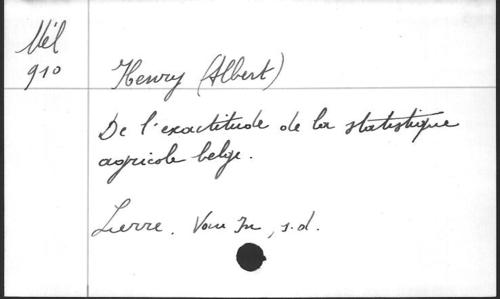 Mél
910
Henry (Albert)
De l'exactitude de la statistique
agricole belge.
Lierre. Van In, s.d.